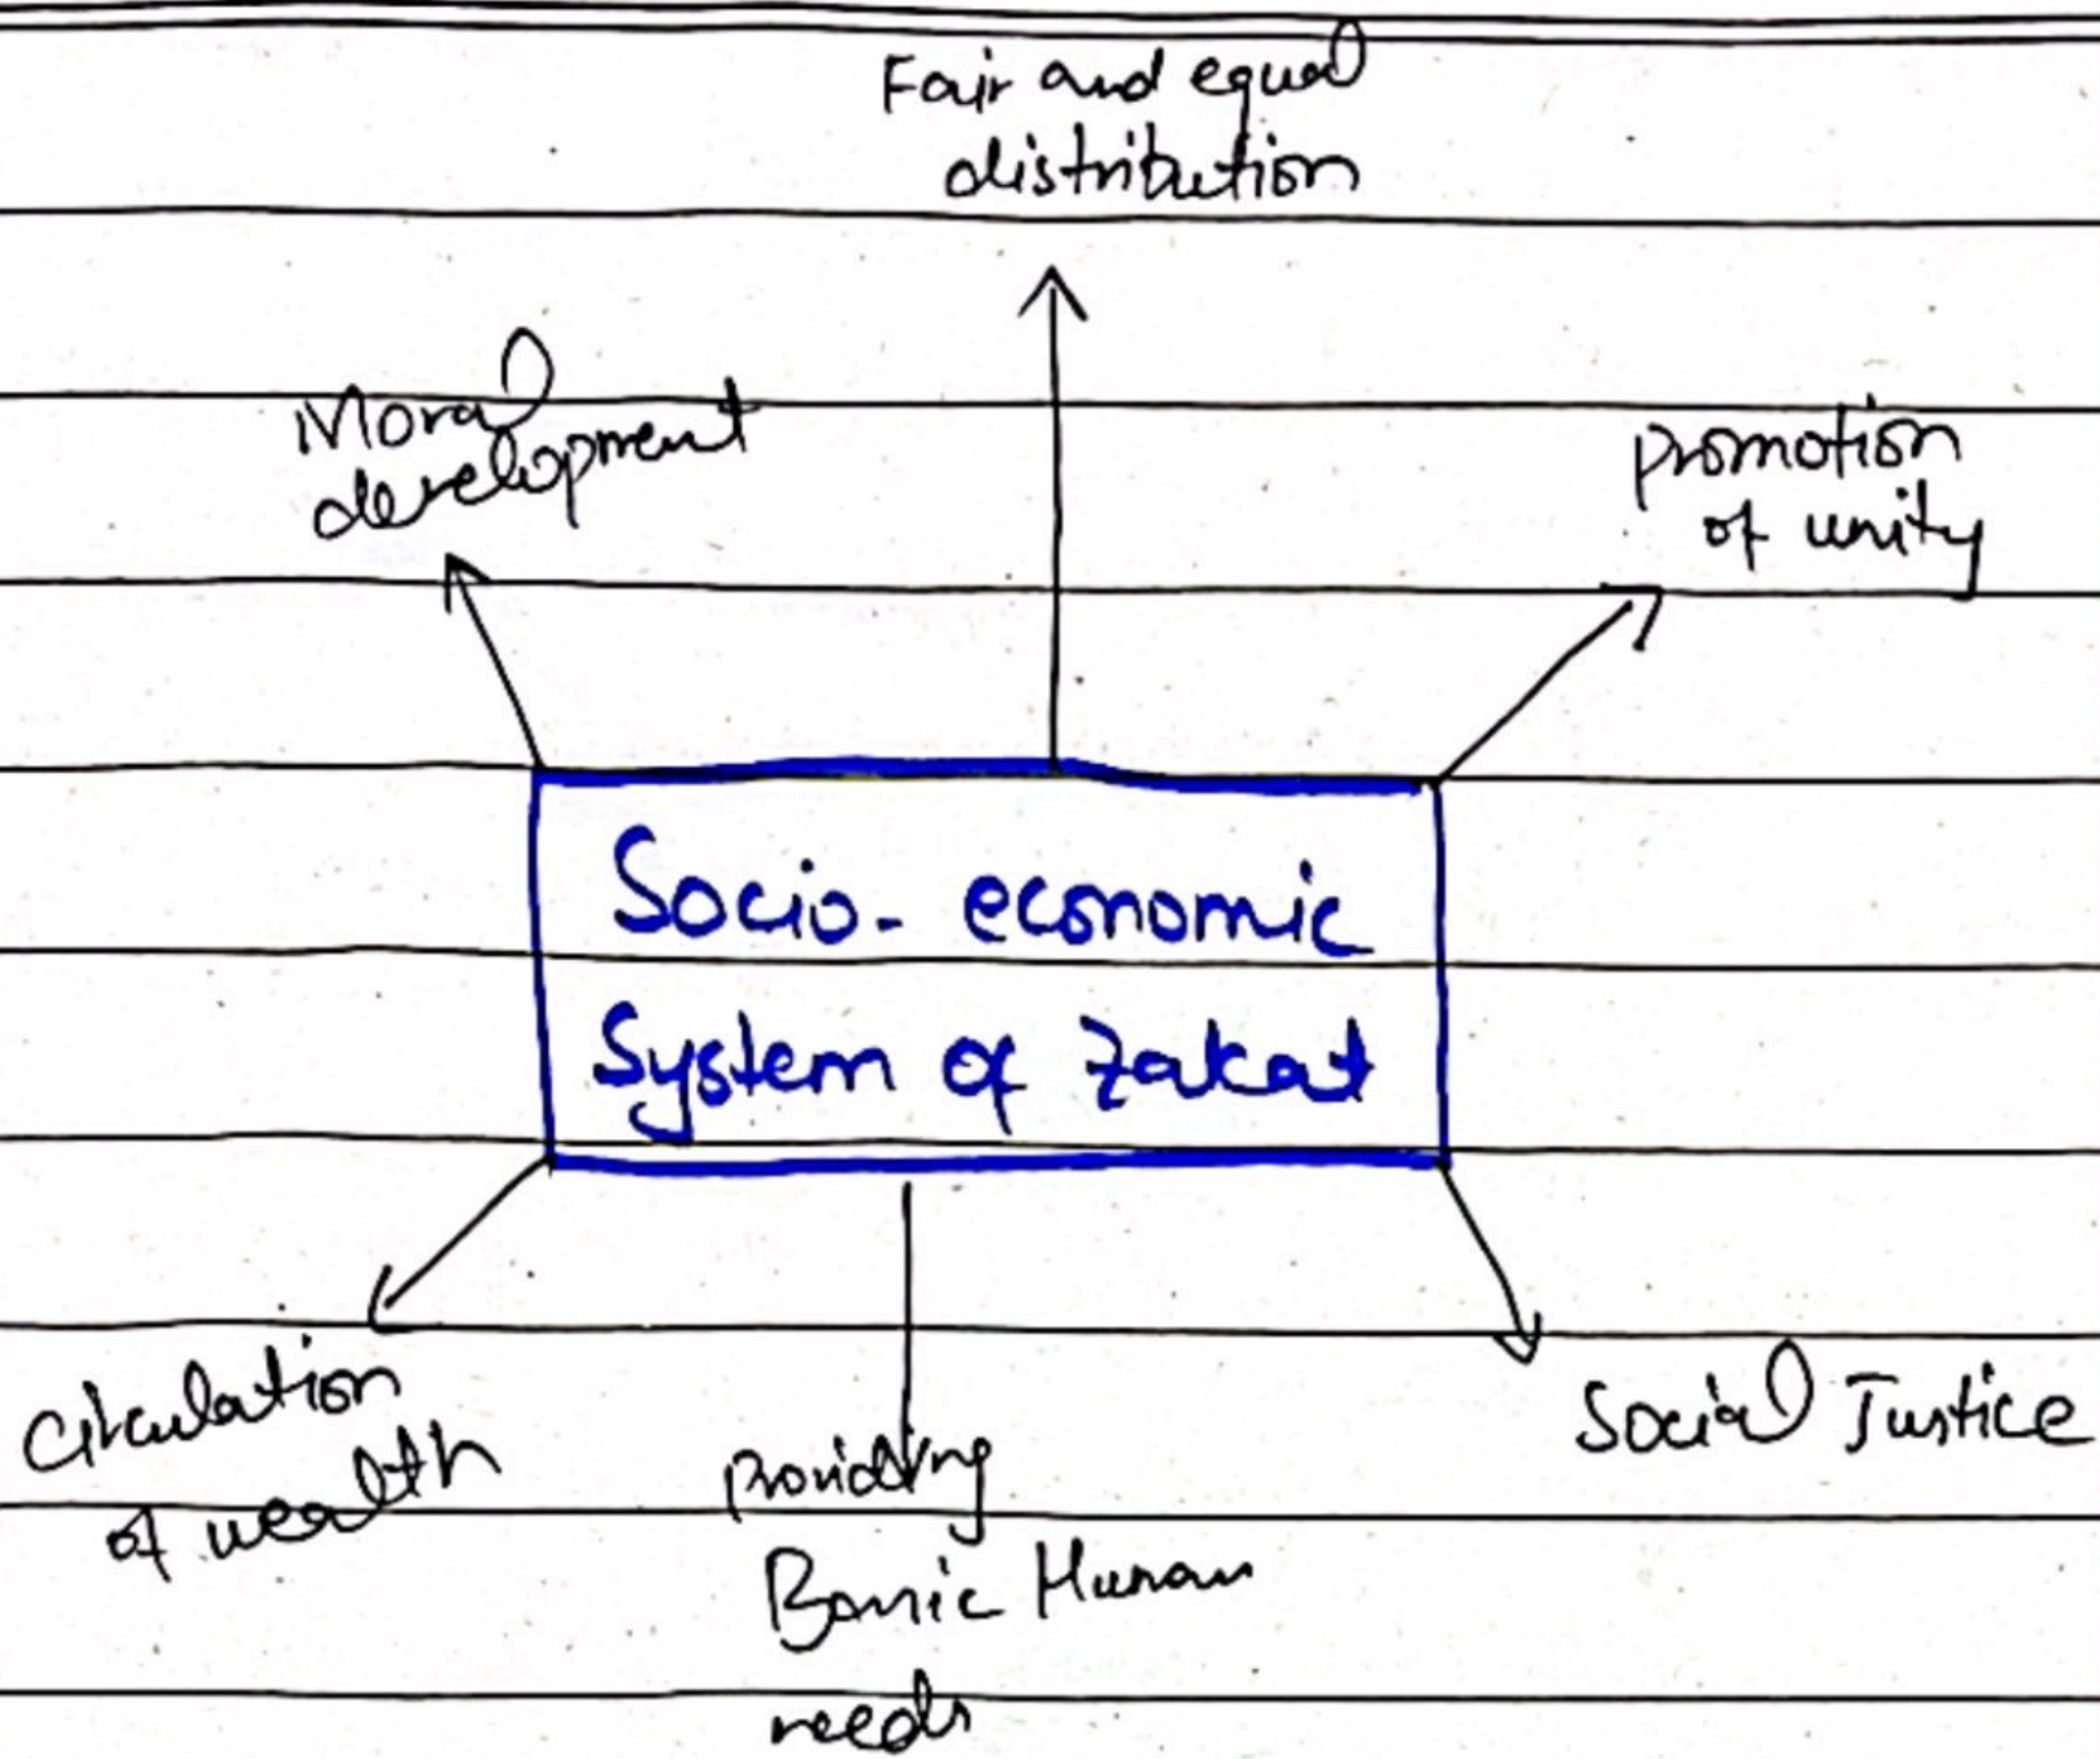 Fair and equal
distribution
Moral
development
promotion
of unity
Socio- economic
System of Zakat
Circulation
of wealth
providing
Basic Human
needs
Social Justice